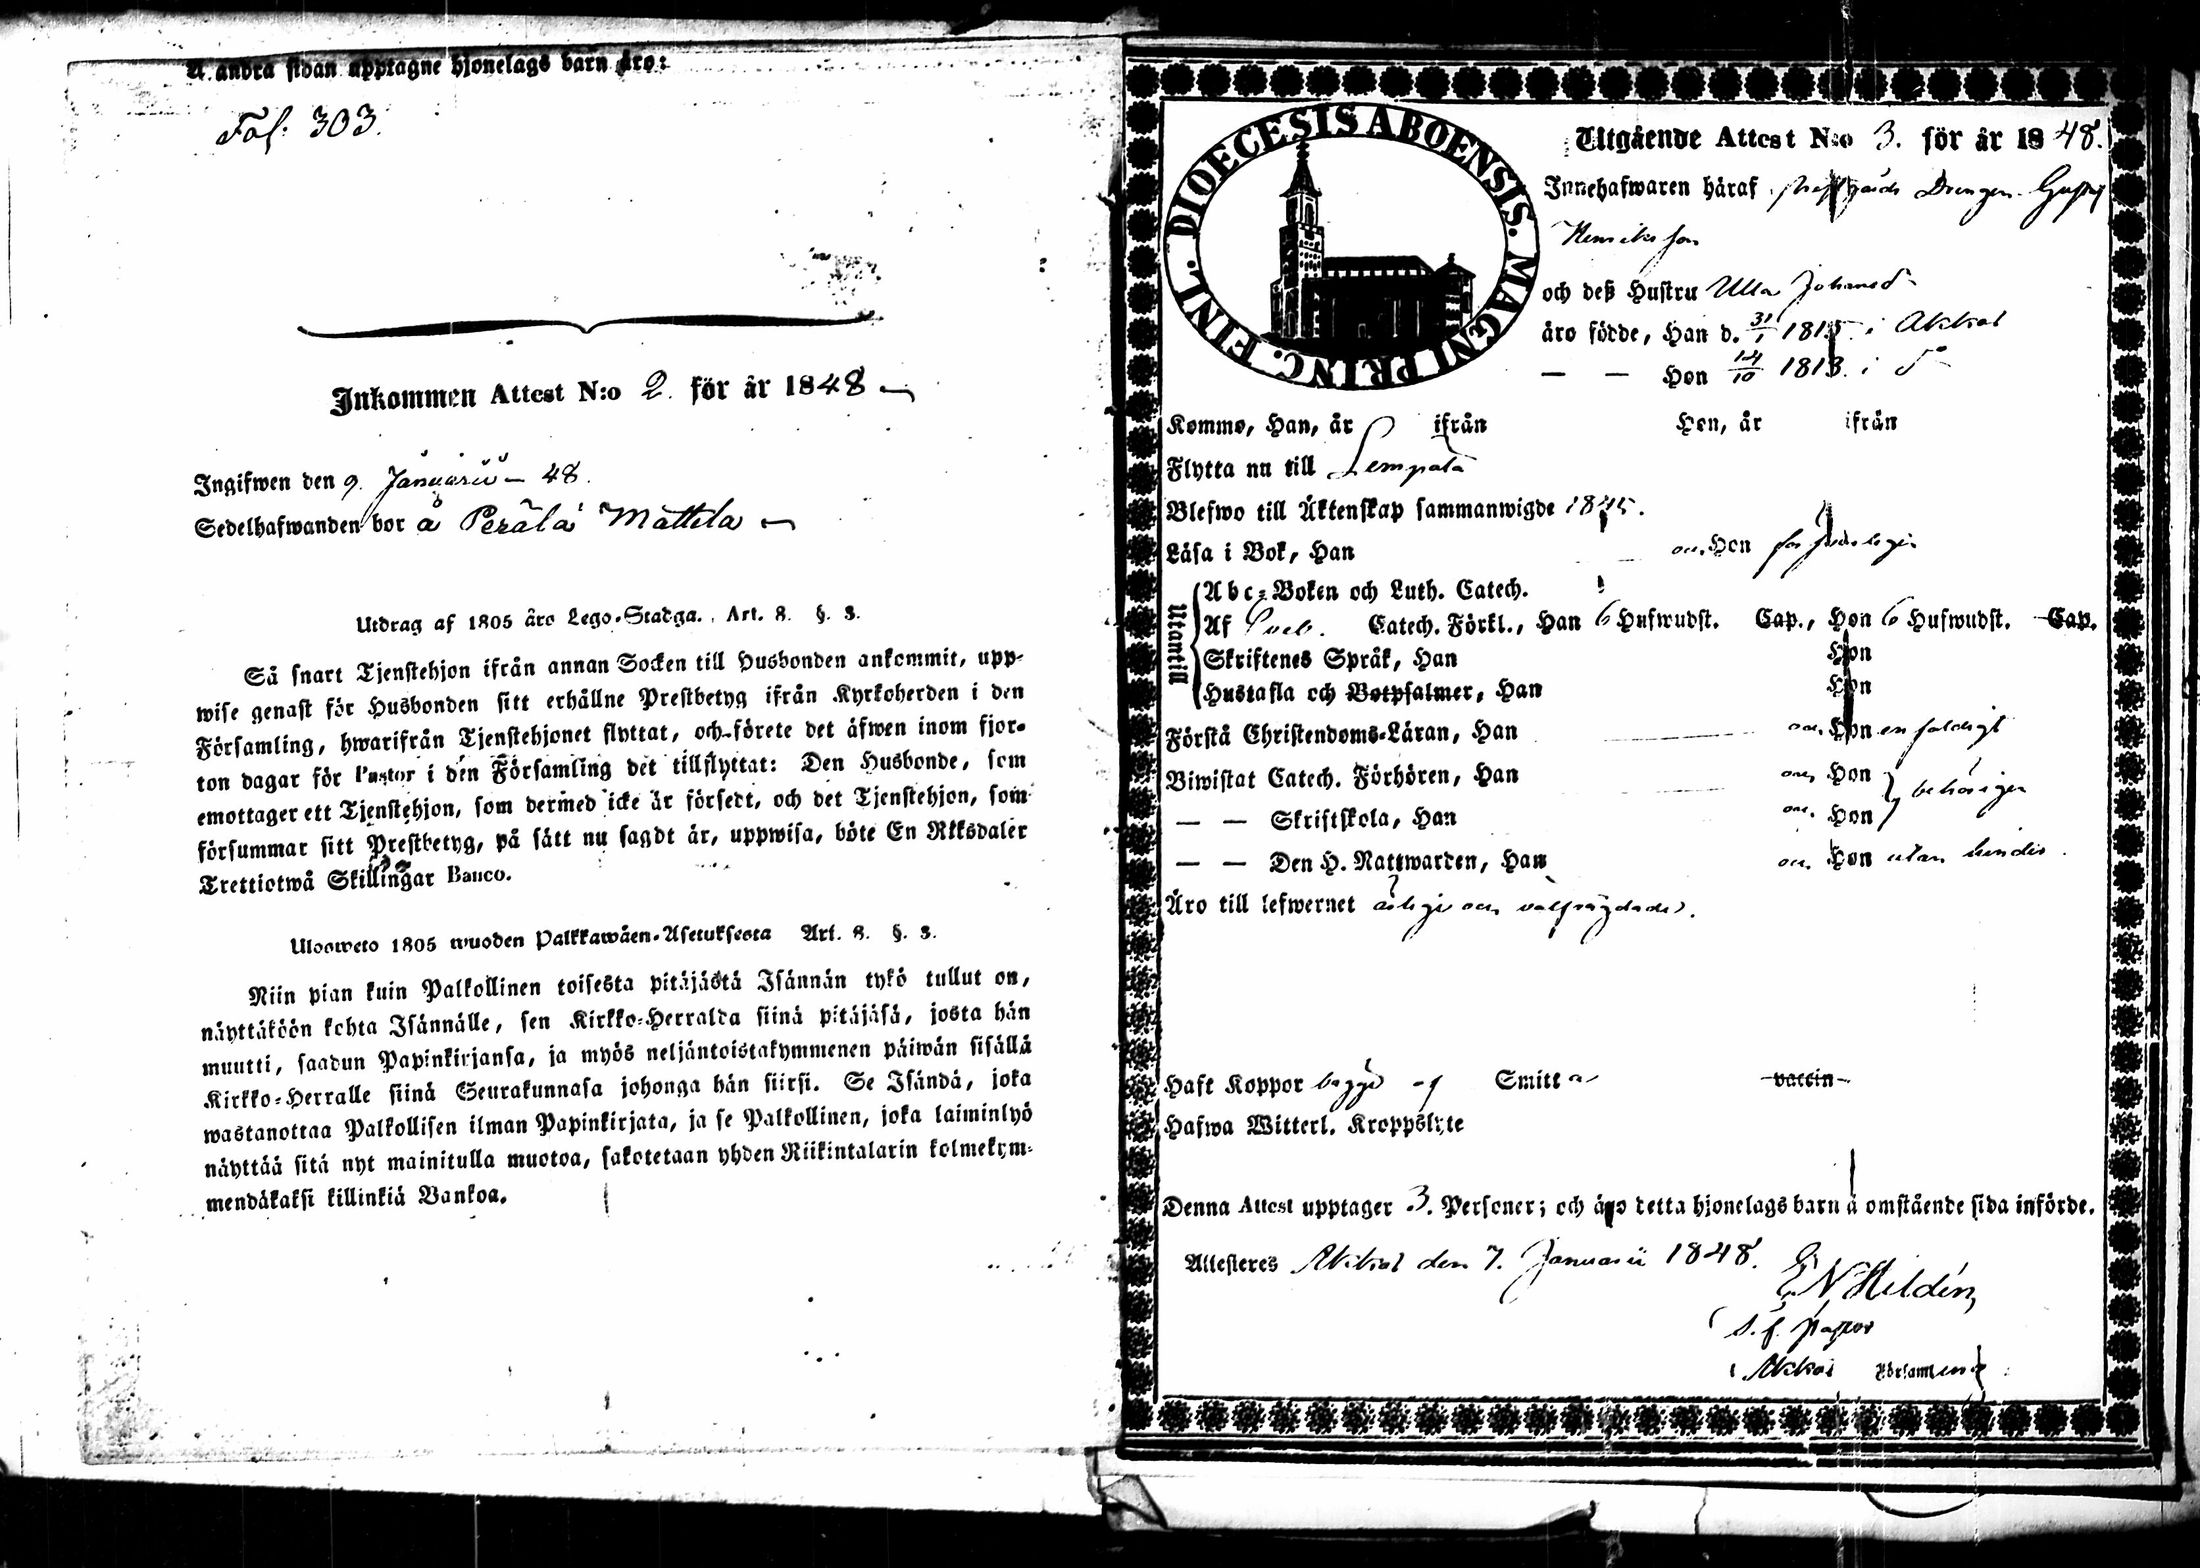 A andra sidan upptagne hjonelags barn äro:
Fol: 303.
Inkommen Attest N:o 2. för år 1848
Ingifwen den 9. Januarii 48.
Sedelhafwanden bor å Perälä Mattila
Utdrag af 1805 års Lego-Stadga. Art. 8. §. 3.
Så snart Tjenstehjon ifrån annan Socken till Husbonden ankommit, upp-
wise genast för Husbonden sitt erhållne Prestbetyg ifrån Kyrkoherden i den
Församling, hwarifrån Tjenstehjonet flyttat, och förete det äfwen inom fjor-
ton dagar för Pastor i den Församling det tillflyttat: Den Husbonde, som
emottager ett Tjenstehjon, som dermed icke är försedt, och det Tjenstehjon, som
försummar sitt Prestbetyg, på sätt nu sagdt är, uppwisa, böte En Riksdaler
Trettiotwå Skillingar Banco.
Ulosweto 1805 wuoden Palkkawäen-Asetuksesta Art. 8. §. 3.
Niin pian kuin Palkollinen toisesta pitäjästä Isännän tykö tullut on,
näyttäköön kohta Isännälle, sen Kirkko-Herralda siinä pitäjäsä, josta hän
muutti, saadun Papinkirjansa, ja myös neljäntoistakymmenen päiwän sisällä
Kirkko-Herralle siinä Seurakunnasa johonga hän siirsi. Se Isändä, joka
wastanottaa Palkollisen ilman Papinkirjata, ja se Palkollinen, joka laiminlyö
näyttää sitä nyt mainitulla muotoa, sakotetaan yhden Riikintalarin kolmekym-
mendäkaksi killinkiä Bankoa.
DIOECESIS ABOENSIS. MAGNI PRINC. FINL.
Utgående Attest N:o 3. för år 1848.
Innehafwaren häraf Drengen Gustaf
Henriksson
och deß Hustru Ulla Johansd
äro födde, Han d. 31/1 1815 i Akkas
— — Hon 14/10 1813. i
Kommo, Han, år ifrån Hon, år ifrån
Flytta nu till Lempälä
Blefwo till Äktenskap sammanwigde 1845.
Läsa i Bok, Han Hon
Utantill
Abc-Boken och Luth. Catech.
Af Sveb. Catech. Förkl., Han 6 Hufwudst. Cap., Hon 6 Hufwudst. Cap.
Skriftenes Språk, Han Hon
Hustafla och Botpsalmer, Han Hon
Förstå Christendoms-Läran, Han och Hon enfaldigt
Biwistat Catech. Förhören, Han och Hon
— — Skriftskola, Han och Hon behörigen
— — Den H. Nattwarden, Han och Hon utan hinder.
Äro till lefwernet ärlige och välfrägdade.
Haft Koppor begge Smitt vaccin
Hafwa Witterl. Kroppslyte
Denna Attest upptager 3. Personer; och äro detta hjonelags barn å omstående sida införde.
Attesteres Akkas den 7. Januarii 1848.
E N Hildén,
i Akkas Församling